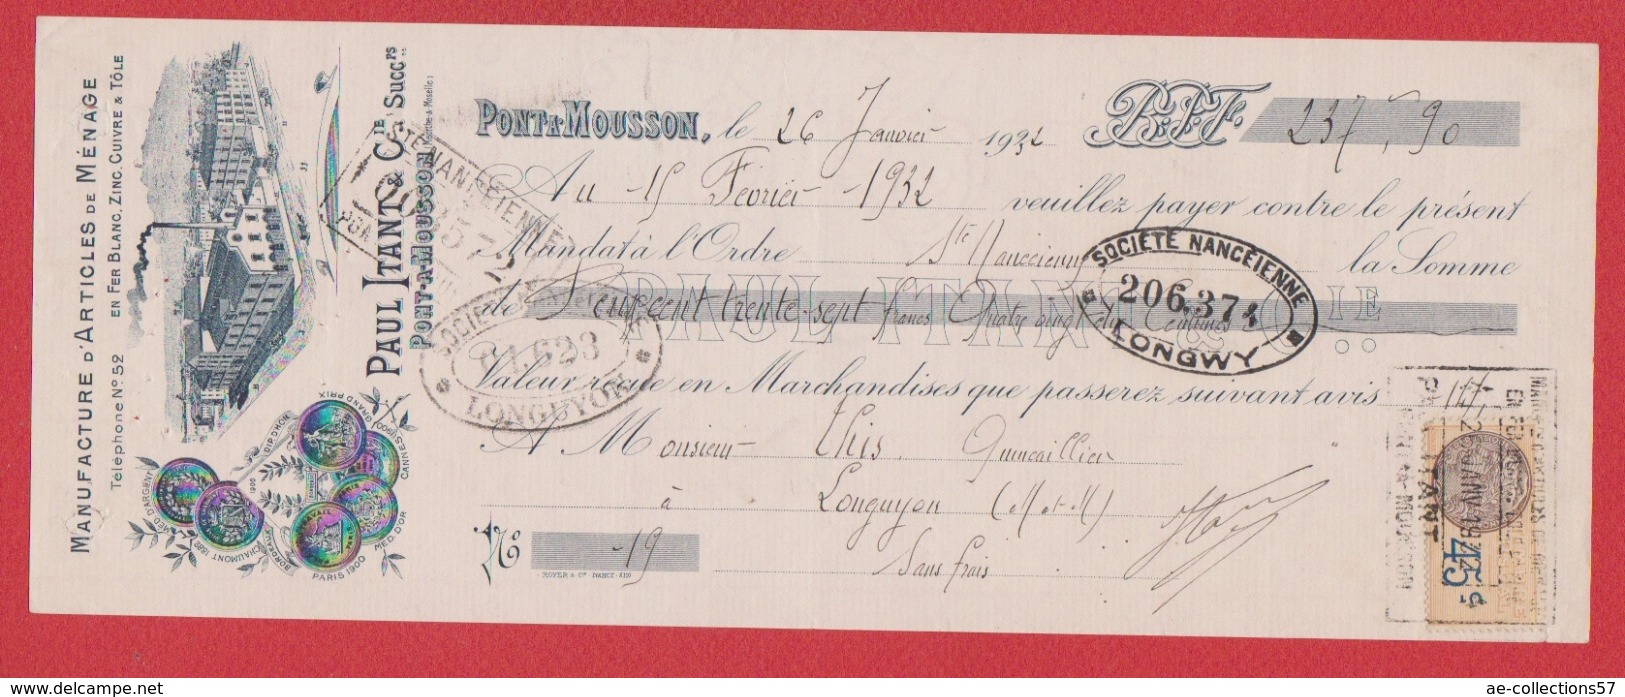 MANUFACTURE D'ARTICLES DE MÉNAGE
EN FER BLANC, ZINC, CUIVRE & TÔLE
Téléphone No. 52
PAUL ITANT & CIE SUCCRS
PONT-A-MOUSSON (Meurthe & Moselle)
DIP. D'HON.
GRAND PRIX
CANNES 1900
MED. D'ARGENT
CHAUMONT 1889
BORDEAUX
1900
PARIS 1900
MED. D'OR
PONT-A-MOUSSON, le 26 Janvier 1932 B.P.F. 237,90
Au 15 Février 1932 veuillez payer contre le présent
Mandat à l'Ordre Sté Nancéienne la Somme
de Deux cent trente-sept francs Quatre vingt dix Centimes
PAUL ITANT & CIE
Valeur reçue en Marchandises que passerez suivant avis
A Monsieur This Quincaillier
à Longuyon (M et M)
No 19 Sans frais
ROYER & Cie NANCY
STÉ NANCÉIENNE
SOCIÉTÉ
61.628
LONGUYON
SOCIÉTÉ NANCÉIENNE
206.374
LONGWY
ITANT
PONT-A-MOUSSON
JANV 1932
45 Ct
delcampe.net
ae-collections57